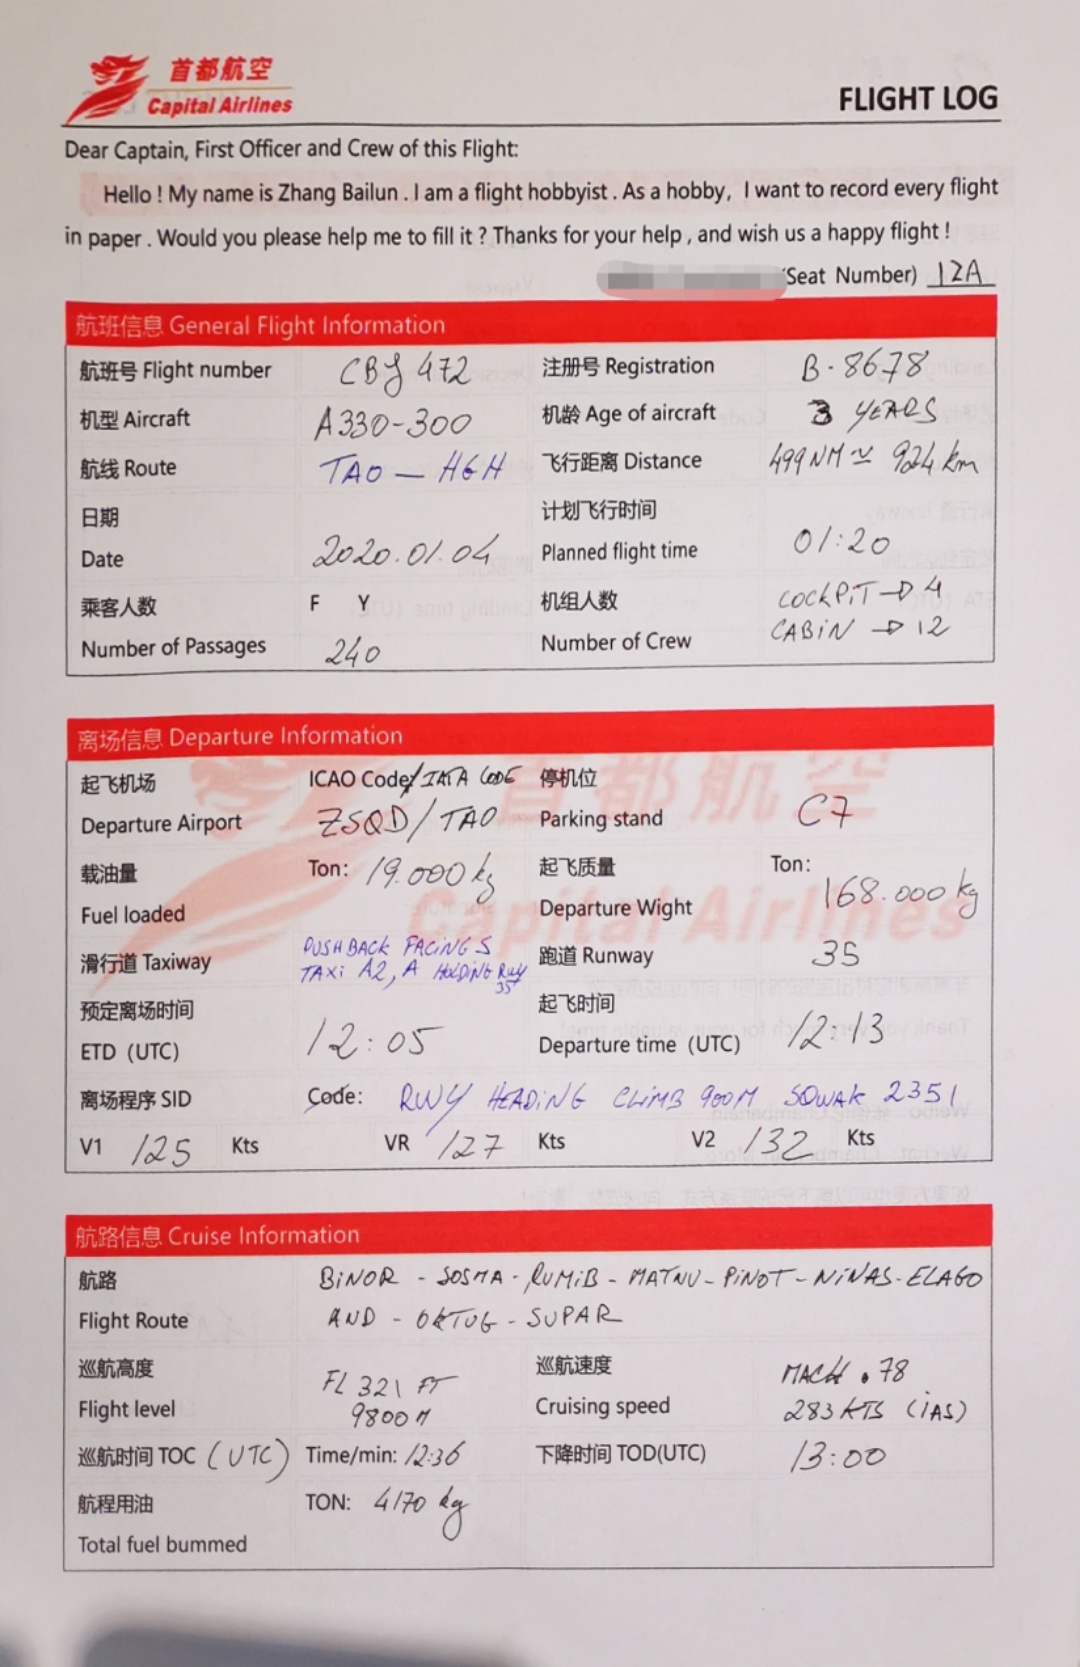 首都航空
Capital Airlines
FLIGHT LOG
Dear Captain, First Officer and Crew of this Flight:
Hello ! My name is Zhang Bailun . I am a flight hobbyist . As a hobby, I want to record every flight
in paper . Would you please help me to fill it ? Thanks for your help , and wish us a happy flight !
(Seat Number) 12A
航班信息 General Flight Information
航班号 Flight number CBJ 472 注册号 Registration B-8678
机型 Aircraft A330-300 机龄 Age of aircraft 3 YEARS
航线 Route TAO — HGH 飞行距离 Distance 499NM ≃ 924 km
日期 计划飞行时间
Date 2020.01.04 Planned flight time 01:20
乘客人数 F Y 机组人数 COCKPiT → 4
Number of Passages 240 Number of Crew CABiN → 12
离场信息 Departure Information
起飞机场 ICAO Code/IATA CODE 停机位
Departure Airport ZSQD/TAO Parking stand C7
载油量 Ton: 19.000 kg 起飞质量 Ton:
Fuel loaded Departure Wight 168.000 kg
滑行道 Taxiway PUSHBACK FACiNG S 跑道 Runway 35
TAXi A2, A HOLDiNG RWY
35
预定离场时间 起飞时间
ETD (UTC) 12:05 Departure time (UTC) 12:13
离场程序 SID Code: RWY HEADiNG CLiMB 900M SQWAK 2351
V1 125 Kts VR 127 Kts V2 132 Kts
首都航空
Capital Airlines
航路信息 Cruise Information
航路 BiNOR - SOSMA - RUMiB - MATNU - PiNOT - NiNAS - ELAGO
Flight Route AND - OKTUG - SUPAR
巡航高度 FL 321 FT 巡航速度 MACH .78
Flight level 9800 M Cruising speed 283 KTS (iAS)
巡航时间 TOC (UTC) Time/min: 12:36 下降时间 TOD(UTC) 13:00
航程用油 TON: 4170 kg
Total fuel bummed